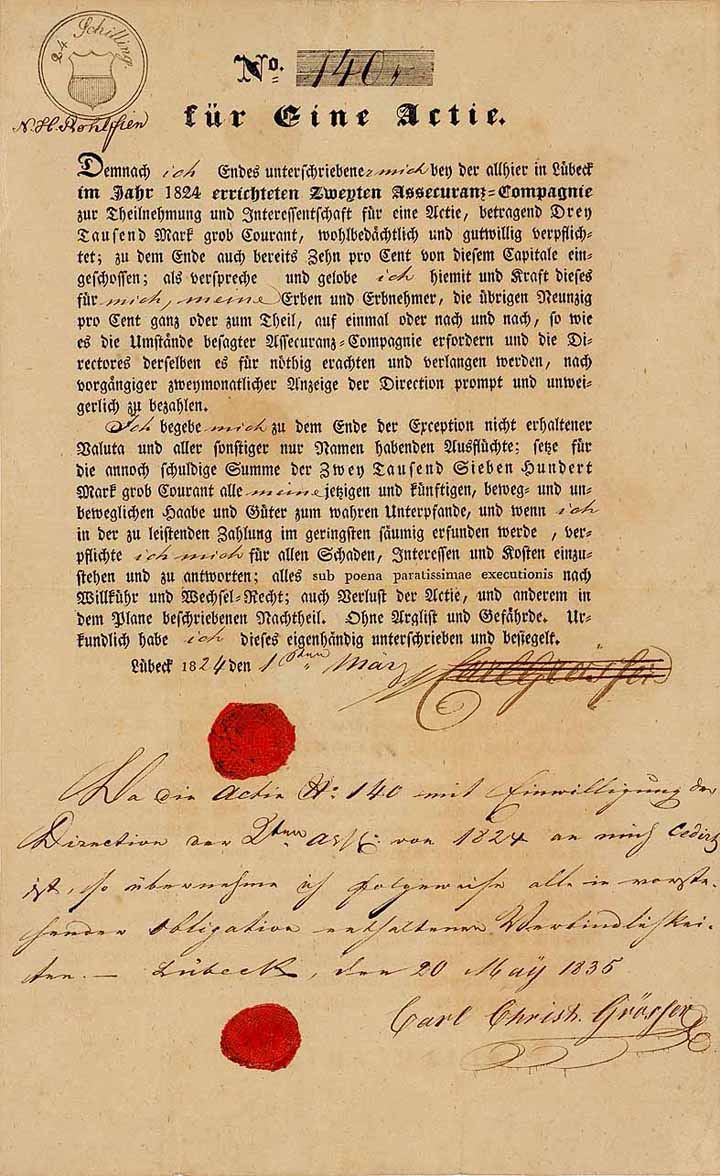 24 Schilling.
No. 140,
N. H. Rohlffien
für Eine Actie.
Demnach ich Endes unterschriebener mich bey der allhier in Lübeck
im Jahr 1824 errichteten Zweyten Assecuranz-Compagnie
zur Theilnehmung und Interessentschaft für eine Actie, betragend Drey
Tausend Mark grob Courant, wohlbedächtlich und gutwillig verpflich-
tet; zu dem Ende auch bereits Zehn pro Cent von diesem Capitale ein-
geschossen; als verspreche und gelobe ich hiemit und Kraft dieses
für mich, meine Erben und Erbnehmer, die übrigen Neunzig
pro Cent ganz oder zum Theil, auf einmal oder nach und nach, so wie
es die Umstände besagter Assecuranz-Compagnie erfordern und die Di-
rectores derselben es für nöthig erachten und verlangen werden, nach
vorgängiger zweymonatlicher Anzeige der Direction prompt und unwei-
gerlich zu bezahlen.
Ich begebe mich zu dem Ende der Exception nicht erhaltener
Valuta und aller sonstiger nur Namen habenden Ausflüchte; setze für
die annoch schuldige Summe der Zwey Tausend Sieben Hundert
Mark grob Courant alle meine jetzigen und künftigen, beweg- und un-
beweglichen Haabe und Güter zum wahren Unterpfande, und wenn ich
in der zu leistenden Zahlung im geringsten säumig erfunden werde, ver-
pflichte ich mich für allen Schaden, Interessen und Kosten einzu-
stehen und zu antworten; alles sub poena paratissimae executionis nach
Willkühr und Wechsel-Recht; auch Verlust der Actie, und anderem in
dem Plane beschriebenen Nachtheil. Ohne Arglist und Gefährde. Ur-
kundlich habe ich dieses eigenhändig unterschrieben und besiegelt.
Lübeck 1824 den 1sten März
Da die Actie No. 140 mit Einwilligung der
Direction der 2ten Ass. C. von 1824 an mich cedirt
ist, so übernehme ich folgeweise alle in vorste-
hender Obligation enthaltenen Verbindlichkei-
ten. — Lübeck, den 20 Maÿ 1835
Carl Christ. Grösser